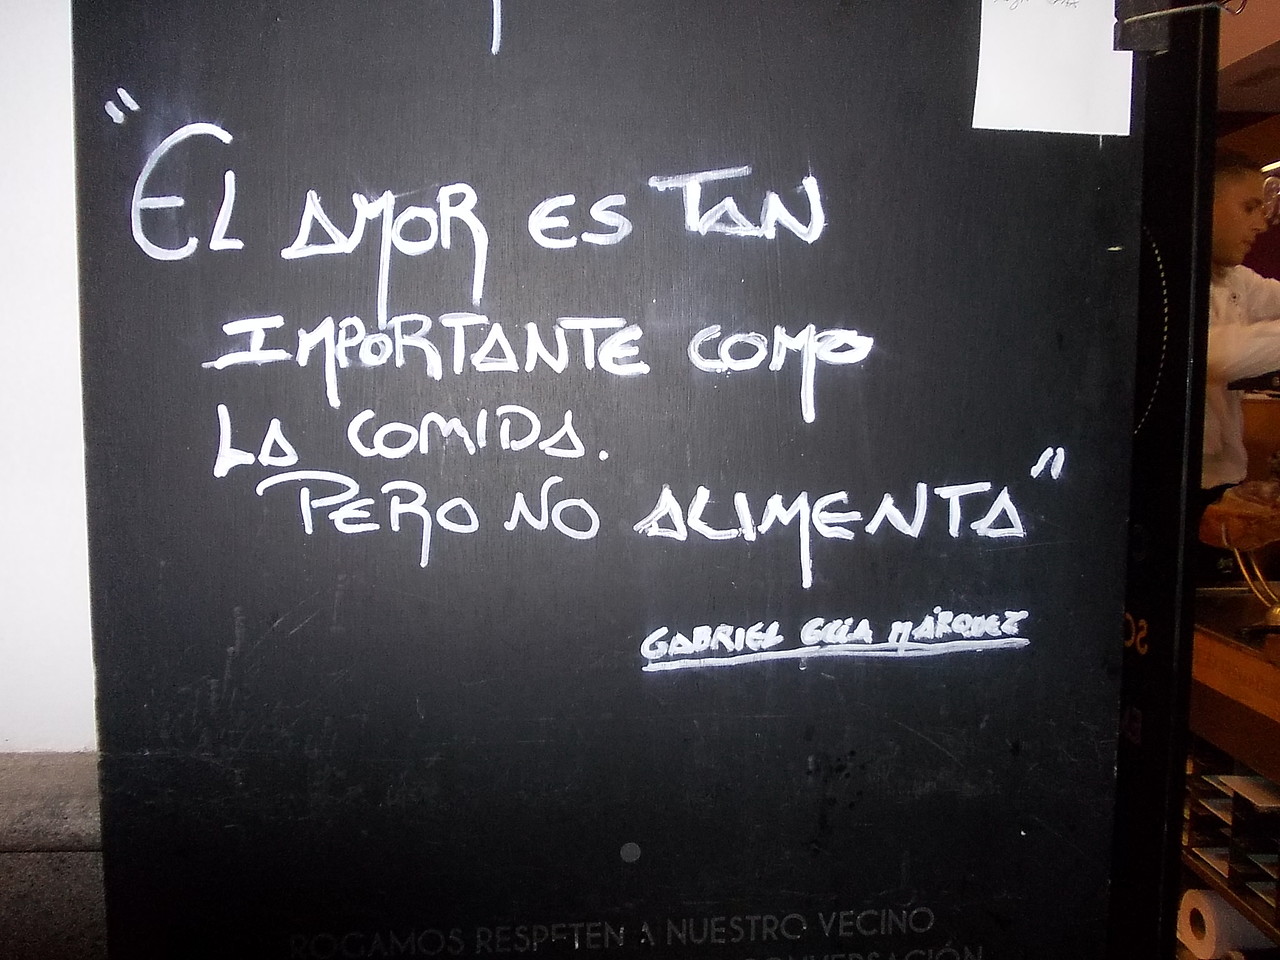 "EL AMOR ES TAN
IMPORTANTE COMO
LA COMIDA.
PERO NO ALIMENTA"
GABRIEL GCIA MÁRQUEZ
ROGAMOS RESPETEN A NUESTRO VECINO
CONVERSACIÓN